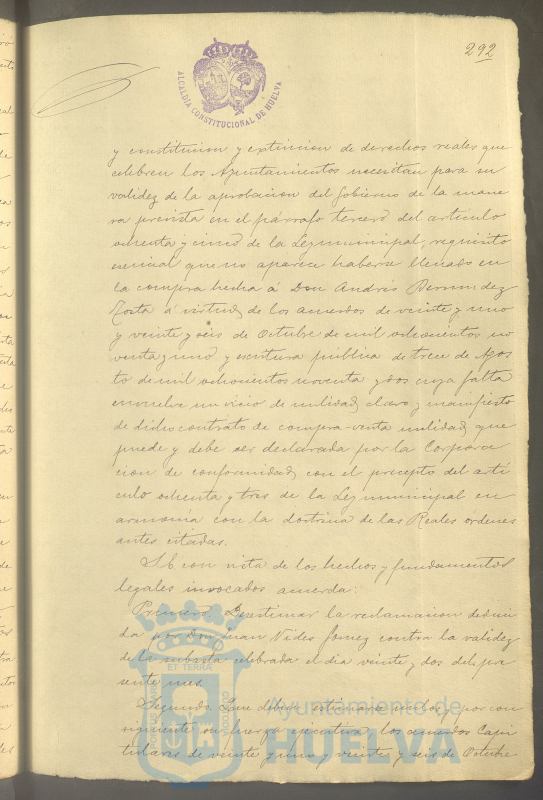 292
ALCALDIA CONSTITUCIONAL DE HUELVA
y constitucion y extincion de derechos reales que
celebren los Ayuntamientos necesitan para su
validez de la aprobacion del Gobierno de la mane
ra prevista en el párrafo tercero del articulo
ochenta y cinco de la Ley municipal, requisito
esencial que no aparece haberse llenado en
la compra hecha á Don Andrés
á virtud de los acuerdos de veinte y uno
y veinte y seis de Octubre de mil ochocientos no
venta y uno y escritura pública de trece de Agos
to de mil ochocientos noventa y dos cuya falta
envuelve un vicio de nulidad claro y manifiesto
de dicho contrato de compra-venta nulidad que
puede y debe ser declarada por la Corpora
cion de conformidad con el precepto del artí
culo ochenta y tres de la Ley municipal en
armonía con la doctrina de las Reales órdenes
antes citadas.
S. E. con vista de los hechos y fundamentos
legales invocados acuerda:
Primero. la reclamacion deduci
da por Don Juan Gomez contra la validez
de la subasta celebrada el dia veinte y dos del pre
sente mes.
Segundo. Que deben estimarse nulos y por con
siguiente sin fuerza ejecutiva los acuerdos Capi
tulares de veinte y uno y veinte y seis de Octubre
PORTUS MARIS
ET TERRÆ
CUSTODIA
Ayuntamiento de
HUELVA